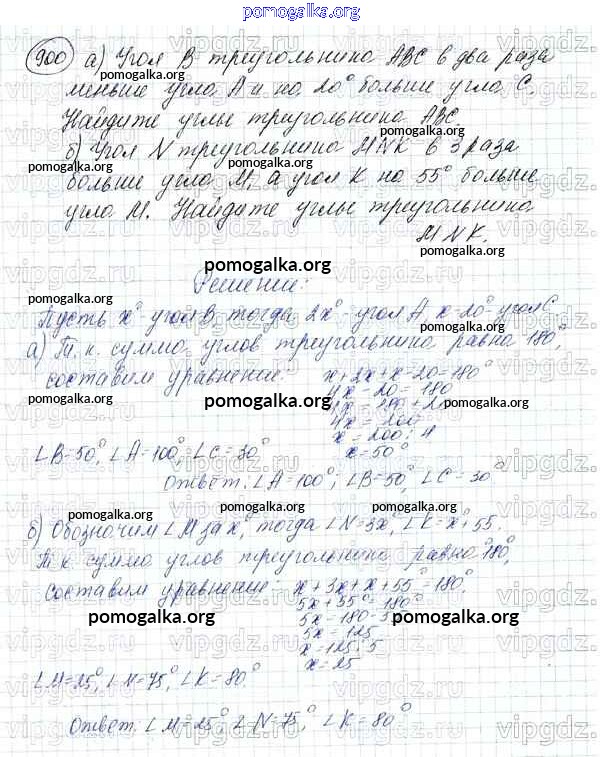 pomogalka.org
900 а) Угол В треугольника АВС в два раза
pomogalka.org
меньше угла А и на 20° больше угла С.
Найдите углы треугольника АВС.
pomogalka.org
б) Угол N треугольника MNK в 3 раза
pomogalka.org pomogalka.org
больше угла М, а угол К на 55° больше
угла М. Найдите углы треугольника
MNK.
pomogalka.org
Решение:
pomogalka.org
Пусть x° - угол В, тогда 2x° - угол А, x-20° угол С
pomogalka.org
а) Т. к. сумма углов треугольника равна 180°,
составим уравнение:
x+2x+x-20=180°
4x-20=180
4x=180+20
pomogalka.org
4x=200
x=200:4
x=50°
∠B=50°, ∠A=100°, ∠C=30°
Ответ: ∠A=100°, ∠B=50°, ∠C=30°
pomogalka.org pomogalka.org
б) Обозначим ∠M за x°, тогда ∠N=3x°, ∠K=x+55.
Т.к. сумма углов треугольника равна 180°,
составим уравнение:
x+3x+x+55°=180°
5x+55°=180°
pomogalka.org pomogalka.org
5x=180-55
5x=125
x=125:5
x=25
∠M=25°, ∠N=75°, ∠K=80°
Ответ. ∠M=25°, ∠N=75°, ∠K=80°